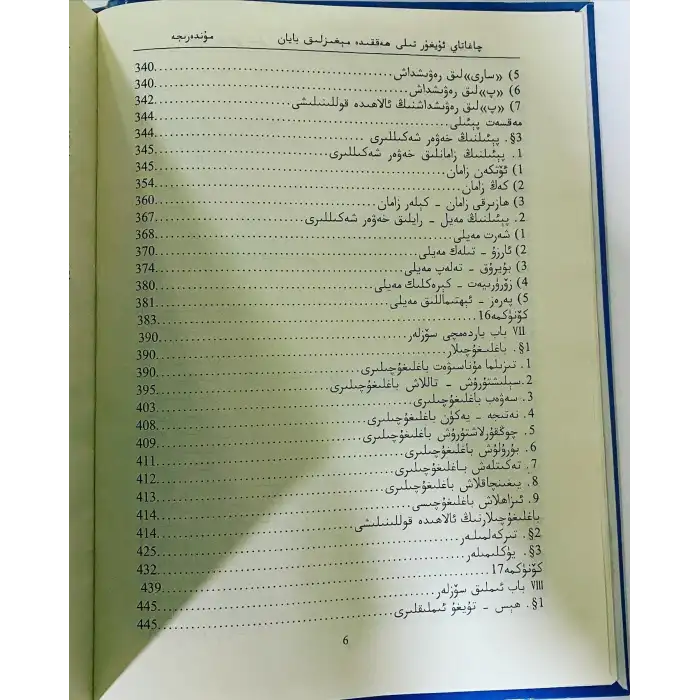 چاغاتاي ئۇيغۇر تىلى ھەققىدە مېغىزلىق بايان مۇندەرىجە
5) «سارى»لىق رەۋىشداش 340
6) «پ»لىق رەۋىشداش 340
7) «پ»لىق رەۋىشداشنىڭ ئالاھىدە قوللىنىلىشى 342
مەقسەت پېئىلى 344
§3. پېئىلنىڭ خەۋەر شەكىللىرى 344
1. پېئىلنىڭ زامانلىق خەۋەر شەكىللىرى 345
1) ئۆتكەن زامان 345
2) كەڭ زامان 354
3) ھازىرقى زامان - كېلەر زامان 360
2. پېئىلنىڭ مەيل - رايلىق خەۋەر شەكىللىرى 367
1) شەرت مەيلى 368
2) ئارزۇ - تىلەك مەيلى 370
3) بۇيرۇق - تەلەپ مەيلى 374
4) زۆرۈرىيەت - كېرەكلىك مەيلى 380
5) پەرەز - ئېھتىماللىق مەيلى 381
كۆنۈكمە16 383
VII باب ياردەمچى سۆزلەر 390
§1. باغلىغۇچىلار 390
1. تىزىلما مۇناسىۋەت باغلىغۇچىلىرى 390
2. سېلىشتۇرۇش - تاللاش باغلىغۇچىلىرى 395
3. سەۋەب باغلىغۇچىلىرى 403
4. نەتىجە - يەكۈن باغلىغۇچىلىرى 408
5. چوڭقۇرلاشتۇرۇش باغلىغۇچىلىرى 409
6. بۇرۇلۇش باغلىغۇچىلىرى 411
7. تەكىتلەش باغلىغۇچىلىرى 412
8. يىغىنچاقلاش باغلىغۇچىلىرى 413
9. ئىزاھلاش باغلىغۇچىسى 414
باغلىغۇچىلارنىڭ ئالاھىدە قوللىنىلىشى 414
§2. تىركەلمىلەر 425
§3. يۈكلىمىلەر 432
كۆنۈكمە17 439
VIII باب ئىملىق سۆزلەر 445
§1. ھېس - تۇيغۇ ئىملىقلىرى 445
6